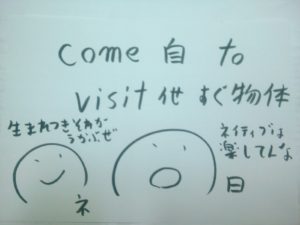 come 自 to
visit 他 すぐ物体
生まれつきそれが
うかぶぜ
ネイティブは
楽してんなぁ
ネ
日